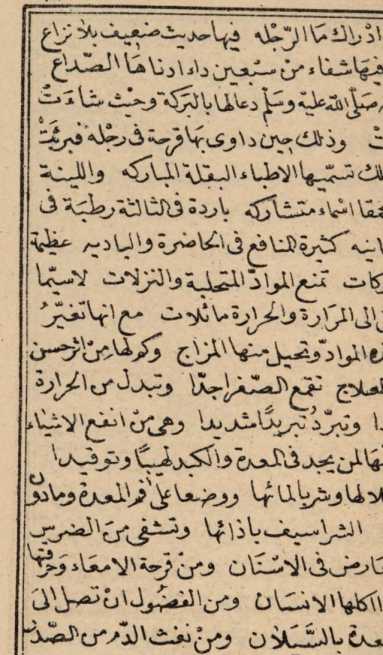 ادراك ما الرّجله فيها حديث ضعيف بلا نزاع
فيها شفاء من سبعين داء ادناها الصّداع
صلّى الله عليه وسلم دعا لها بالبركة وحيث شاءت
وذلك حين داوى بها قرحة فى رجله فبرئت
تسمّيها الاطباء البقلة المباركه واللينة
اسماء متشاركه باردة فى الثالثة رطبة فى
كثيرة المنافع فى الحاضرة والباديه عظيمة
تمنع الموادّ المتحلبة والنزلات لاسيّما
الى المرارة والحرارة مائلات مع انها تغيّر
المواد وتحيل منها المزاج وكولها من اثر حسن
العلاج تقمع الصّفرا جدّا وتبدل من الحرارة
وتبرّد تبريدا شديدا وهى من انفع الاشياء
لمن يجد فى المعدة والكبد لهيبا وتوقيدا
وشربا لمائها ووضعا على فم المعدة ومادون
الشراسيف باذائها وتشفى من الضرس
فى الاسنان ومن قرحة الامعاء وحرقتها
اكلها الانسان ومن الفضول ان تصل الى
بالسّيلان ومن نفث الدّم من الصّدر